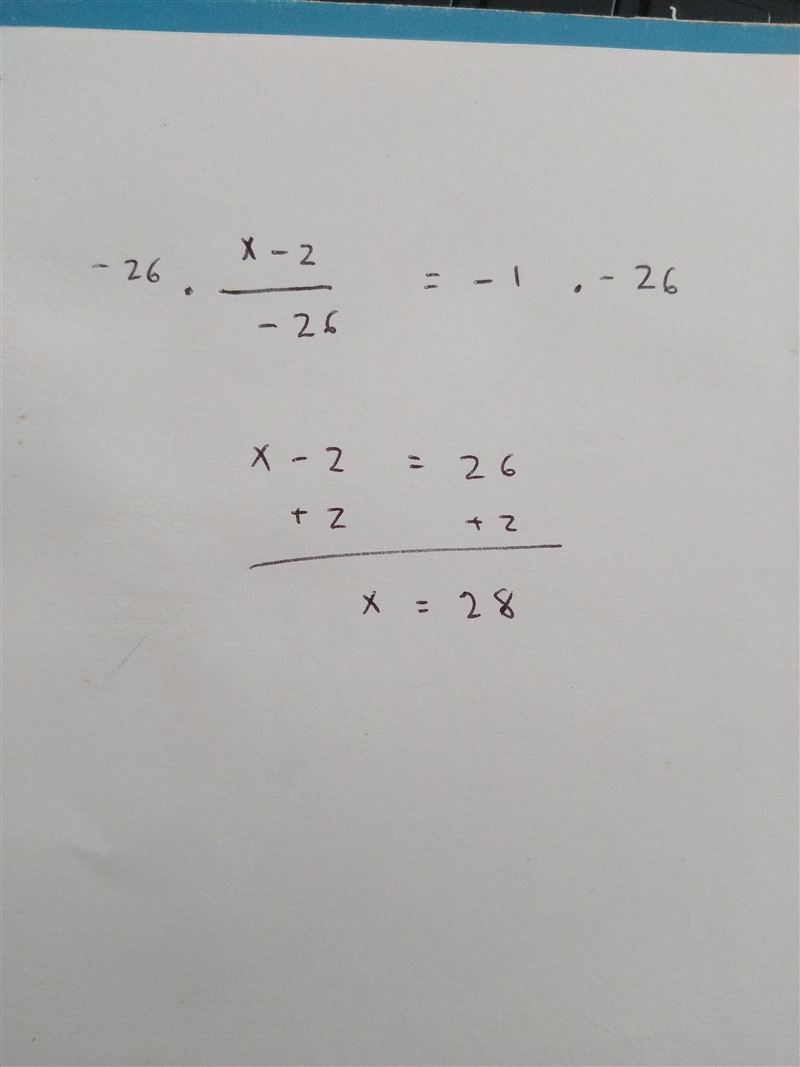 -26 . x - 2 / -26 = -1 . -26
x - 2 = 26
+ 2 + 2
x = 28